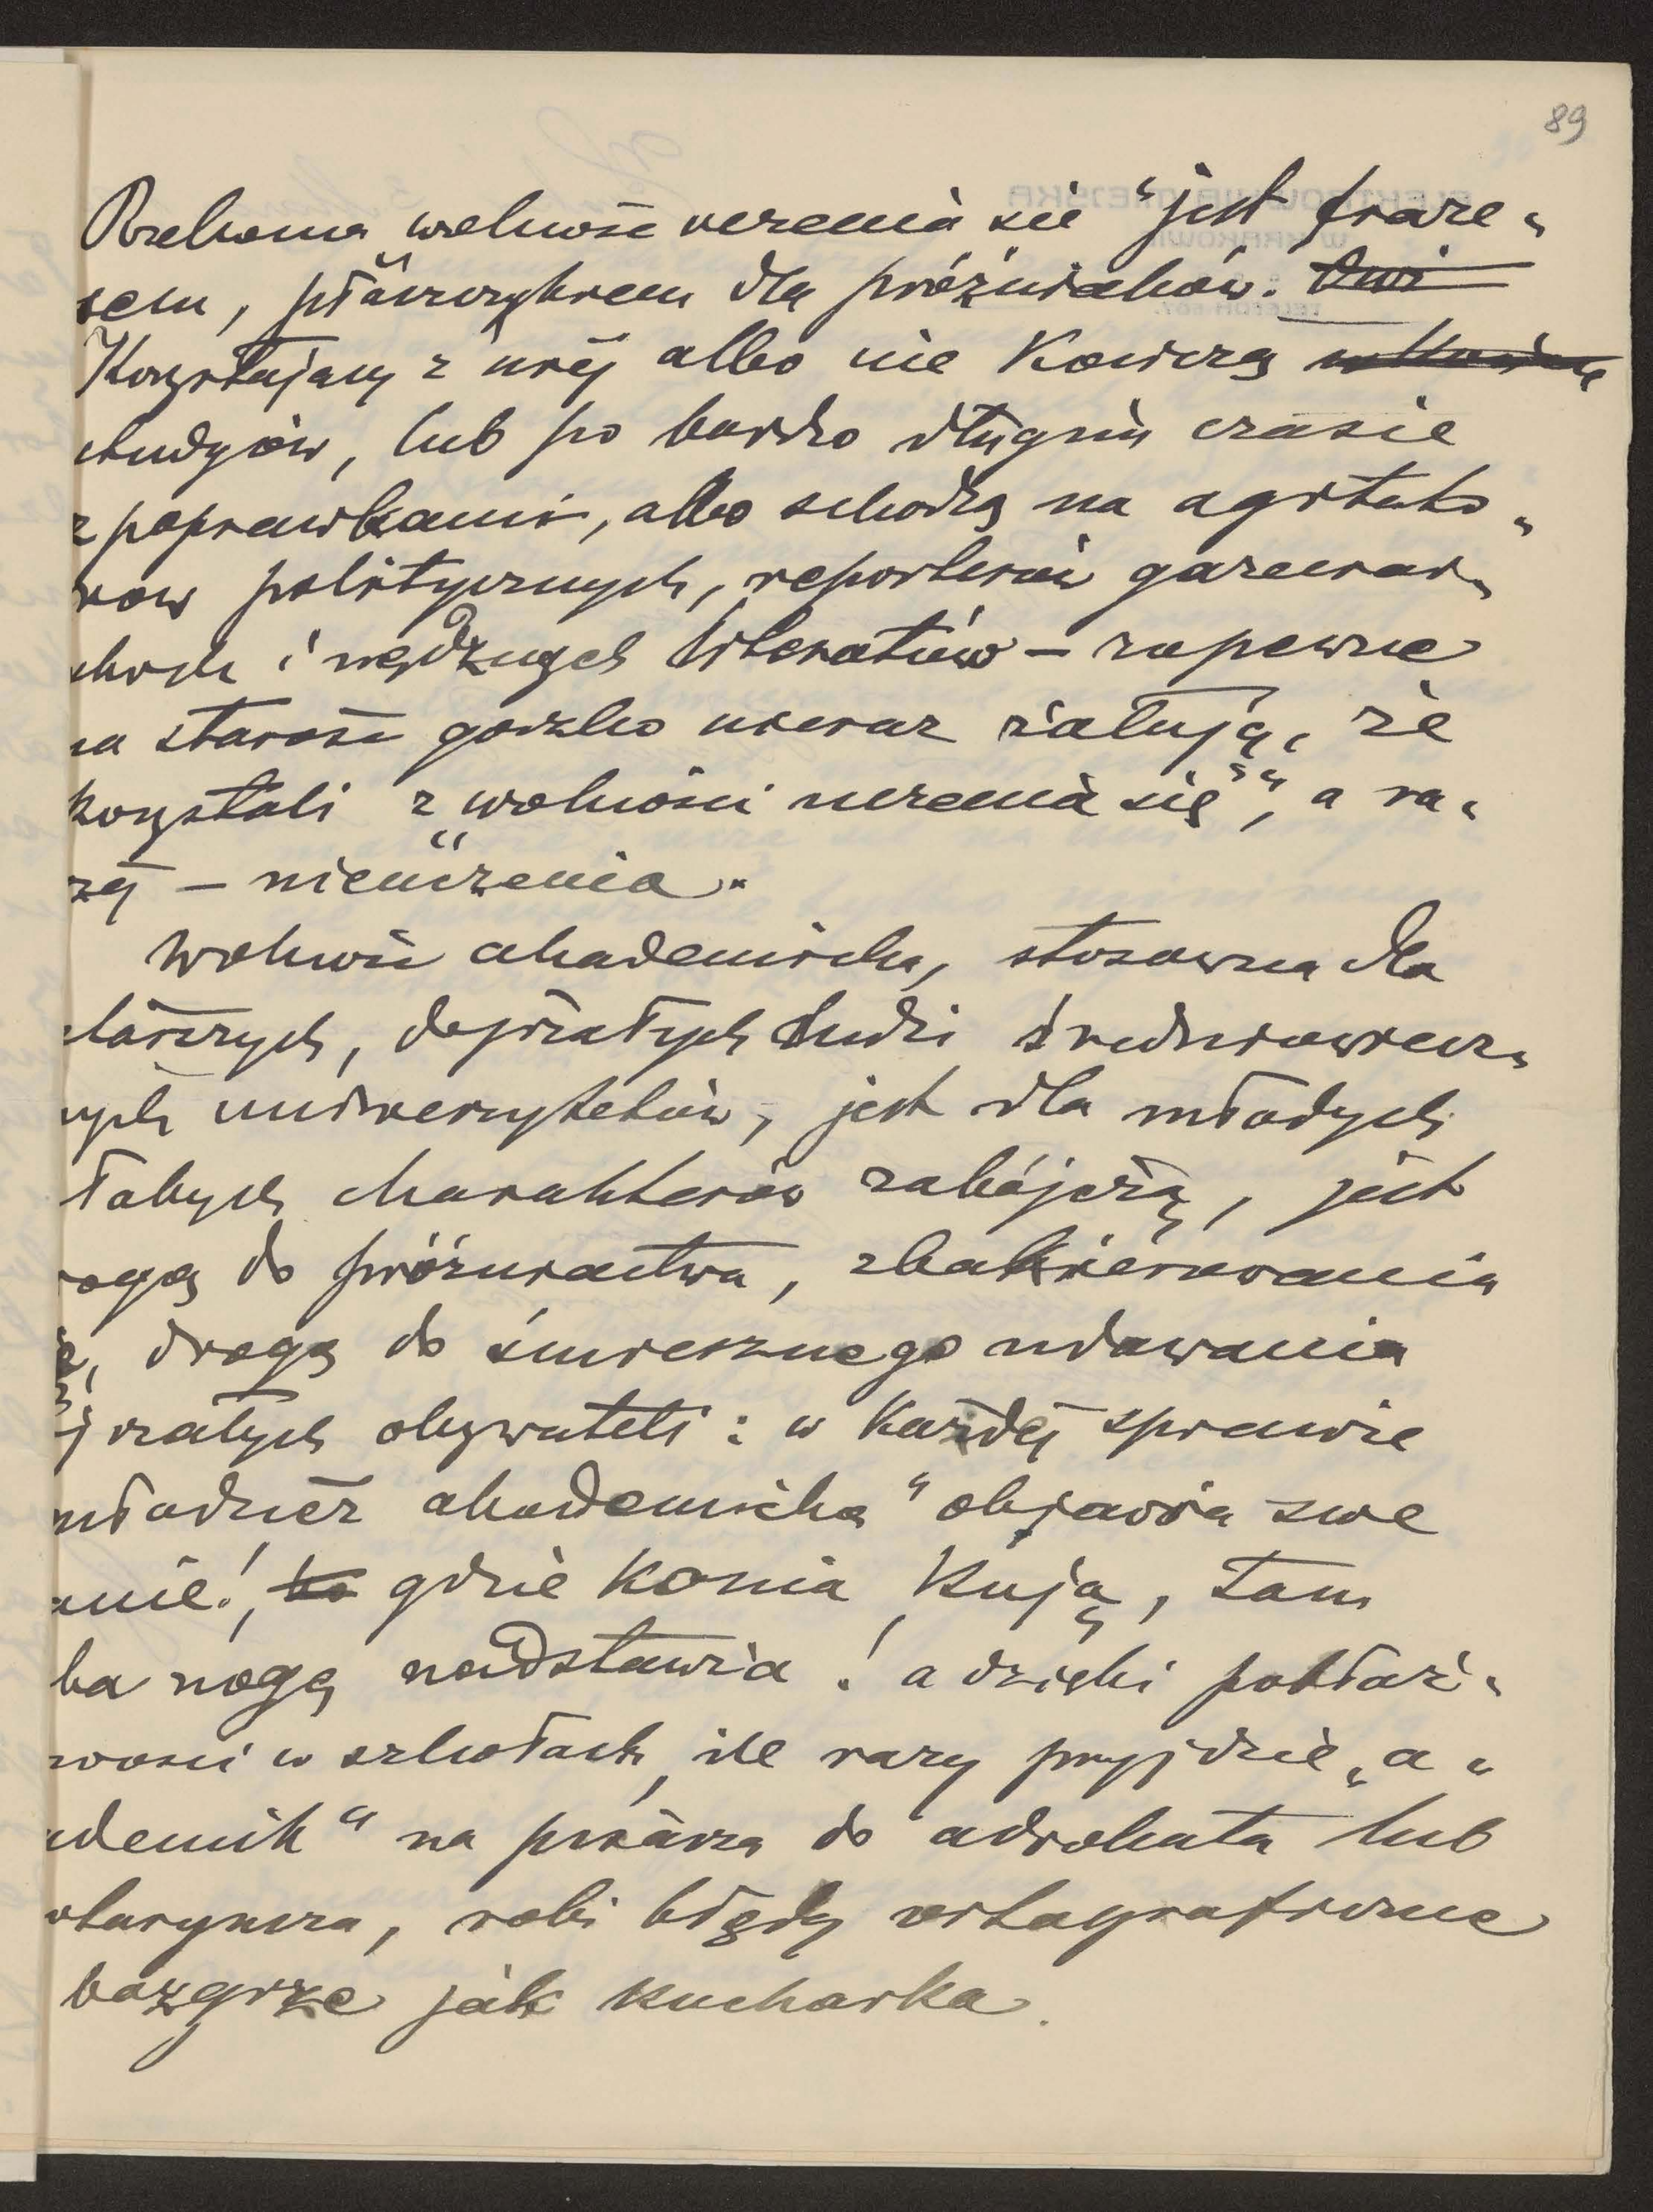 89
Rzekoma „wolność uczenia się" jest fraze„
sem, płaszczykiem dla próżniaków.
Korzystający z niej albo nie kończą
studyów, lub po bardzo długim czasie
z poprawkami, albo schodzą na agitato„
rów politycznych, reporterów gazeciar„
skich i nędznych literatów – zapewne
na starość gorzko nieraz żałują, że
korzystali z „wolności uczenia się", a ra„
czej – nieuczenia.
Wolność akademicka, stosowna dla
starszych, dojrzałych ludzi średniowiecz„
nych uniwersytetów, jest dla młodych
słabych charakterów zabójczą, jest
rogą do próżniactwa, zbakierowania
drogą do śmiesznego udawania
jrzałych obywateli: w każdej sprawie
młodzież akademicka" objawia swe
anie!, gdzie konia kują, tam
ba nogę nadstawia! a dzięki pobłaż„
wości w szkołach, ile razy przyjdzie „a„
ademik" na pisarza do adwokata lub
otaryusza, robi błędy ortograficzne
bazgrze jak kucharka.